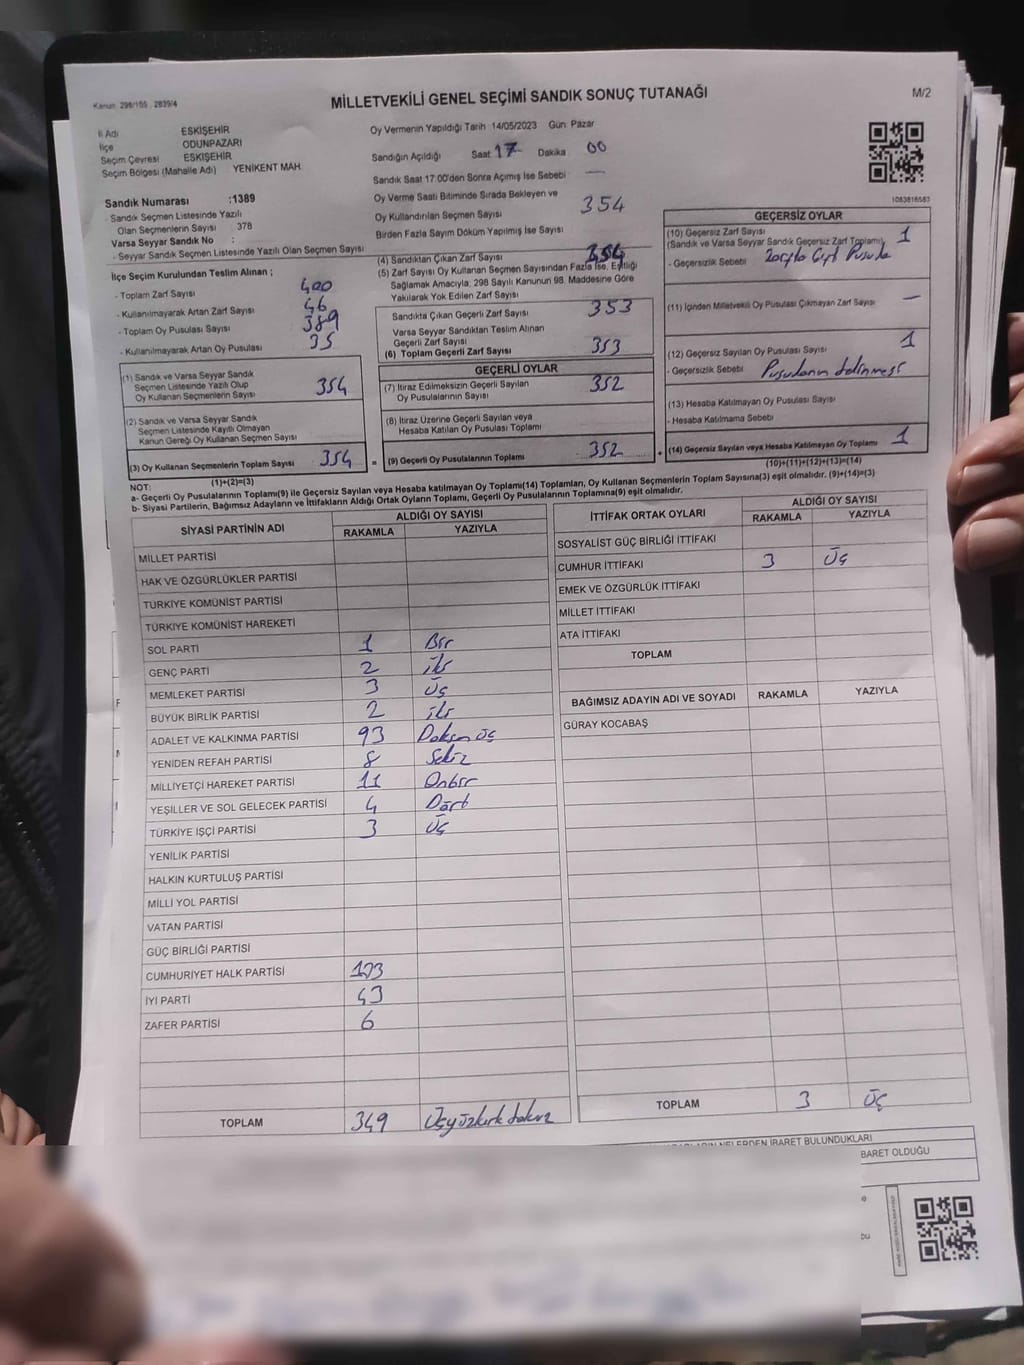 Kanun: 298/105 , 2839/4
MİLLETVEKİLİ GENEL SEÇİMİ SANDIK SONUÇ TUTANAĞI
M/2
İl Adı ESKİŞEHİR
İlçe ODUNPAZARI
Seçim Çevresi ESKİŞEHİR
Seçim Bölgesi (Mahalle Adı) YENİKENT MAH.
Oy Vermenin Yapıldığı Tarih 14/05/2023 Gün: Pazar
Sandığın Açıldığı Saat 17 Dakika 00
Sandık Saat 17:00'den Sonra Açımış İse Sebebi —
1083816583
Sandık Numarası :1389
- Sandık Seçmen Listesinde Yazılı
Olan Seçmenlerin Sayısı : 378
Varsa Seyyar Sandık No :
- Seyyar Sandık Seçmen Listesinde Yazılı Olan Seçmen Sayısı
Oy Verme Saati Bitiminde Sırada Bekleyen ve
Oy Kullandırılan Seçmen Sayısı 354
Birden Fazla Sayım Döküm Yapılmış İse Sayısı
İlçe Seçim Kurulundan Teslim Alınan ;
- Toplam Zarf Sayısı 400
- Kullanılmayarak Artan Zarf Sayısı 46
- Toplam Oy Pusulası Sayısı 389
- Kullanılmayarak Artan Oy Pusulası 35
(1) Sandık ve Varsa Seyyar Sandık
Seçmen Listesinde Yazılı Olup
Oy Kullanan Seçmenlerin Sayısı 354
(2) Sandık ve Varsa Seyyar Sandık
Seçmen Listesinde Kayıtlı Olmayan
Kanun Gereği Oy Kullanan Seçmen Sayısı
(3) Oy Kullanan Seçmenlerin Toplam Sayısı 354
(1)+(2)=(3)
(4) Sandıktan Çıkan Zarf Sayısı 354
(5) Zarf Sayısı Oy Kullanan Seçmen Sayısından Fazla İse, Eşitliği
Sağlamak Amacıyla, 298 Sayılı Kanunun 98. Maddesine Göre
Yakılarak Yok Edilen Zarf Sayısı
Sandıkta Çıkan Geçerli Zarf Sayısı 353
Varsa Seyyar Sandıktan Teslim Alınan
Geçerli Zarf Sayısı
(6) Toplam Geçerli Zarf Sayısı 353
GEÇERLİ OYLAR
(7) İtiraz Edilmeksizin Geçerli Sayılan
Oy Pusulalarının Sayısı 352
(8) İtiraz Üzerine Geçerli Sayılan veya
Hesaba Katılan Oy Pusulası Toplamı
(9) Geçerli Oy Pusulalarının Toplamı : 352
GEÇERSİZ OYLAR
(10) Geçersiz Zarf Sayısı
(Sandık ve Varsa Seyyar Sandık Geçersiz Zarf Toplamı) 1
- Geçersizlik Sebebi Zarfta Çift Pusula
(11) İçinden Milletvekili Oy Pusulası Çıkmayan Zarf Sayısı —
(12) Geçersiz Sayılan Oy Pusulası Sayısı 1
- Geçersizlik Sebebi Pusulanın delinmesi
(13) Hesaba Katılmayan Oy Pusulası Sayısı
- Hesaba Katılmama Sebebi
(14) Geçersiz Sayılan veya Hesaba Katılmayan Oy Toplamı 1
(10)+(11)+(12)+(13)=(14)
NOT:
a- Geçerli Oy Pusulalarının Toplamı(9) ile Geçersiz Sayılan veya Hesaba katılmayan Oy Toplamı(14) Toplamları, Oy Kullanan Seçmenlerin Toplam Sayısına(3) eşit olmalıdır. (9)+(14)=(3)
b- Siyasi Partilerin, Bağımsız Adayların ve İttifakların Aldığı Ortak Oyların Toplamı, Geçerli Oy Pusulalarının Toplamına(9) eşit olmalıdır.
SİYASİ PARTİNİN ADI ALDIĞI OY SAYISI
RAKAMLA YAZIYLA
MİLLET PARTİSİ
HAK VE ÖZGÜRLÜKLER PARTİSİ
TÜRKİYE KOMÜNİST PARTİSİ
TÜRKİYE KOMÜNİST HAREKETİ
SOL PARTİ 1 Bir
GENÇ PARTİ 2 iki
MEMLEKET PARTİSİ 3 Üç
BÜYÜK BİRLİK PARTİSİ 2 iki
ADALET VE KALKINMA PARTİSİ 93 Doksan üç
YENİDEN REFAH PARTİSİ 8 Sekiz
MİLLİYETÇİ HAREKET PARTİSİ 11 Onbir
YEŞİLLER VE SOL GELECEK PARTİSİ 4 Dört
TÜRKİYE İŞÇİ PARTİSİ 3 Üç
YENİLİK PARTİSİ
HALKIN KURTULUŞ PARTİSİ
MİLLİ YOL PARTİSİ
VATAN PARTİSİ
GÜÇ BİRLİĞİ PARTİSİ
CUMHURİYET HALK PARTİSİ 173
İYİ PARTİ 43
ZAFER PARTİSİ 6
TOPLAM 349 Üçyüzkırkdokuz
İTTİFAK ORTAK OYLARI ALDIĞI OY SAYISI
RAKAMLA YAZIYLA
SOSYALİST GÜÇ BİRLİĞİ İTTİFAKI
CUMHUR İTTİFAKI 3 Üç
EMEK VE ÖZGÜRLÜK İTTİFAKI
MİLLET İTTİFAKI
ATA İTTİFAKI
TOPLAM
BAĞIMSIZ ADAYIN ADI VE SOYADI RAKAMLA YAZIYLA
GÜRAY KOCABAŞ
TOPLAM 3 Üç
NELERDEN İBARET BULUNDUKLARI
BARET OLDUĞU